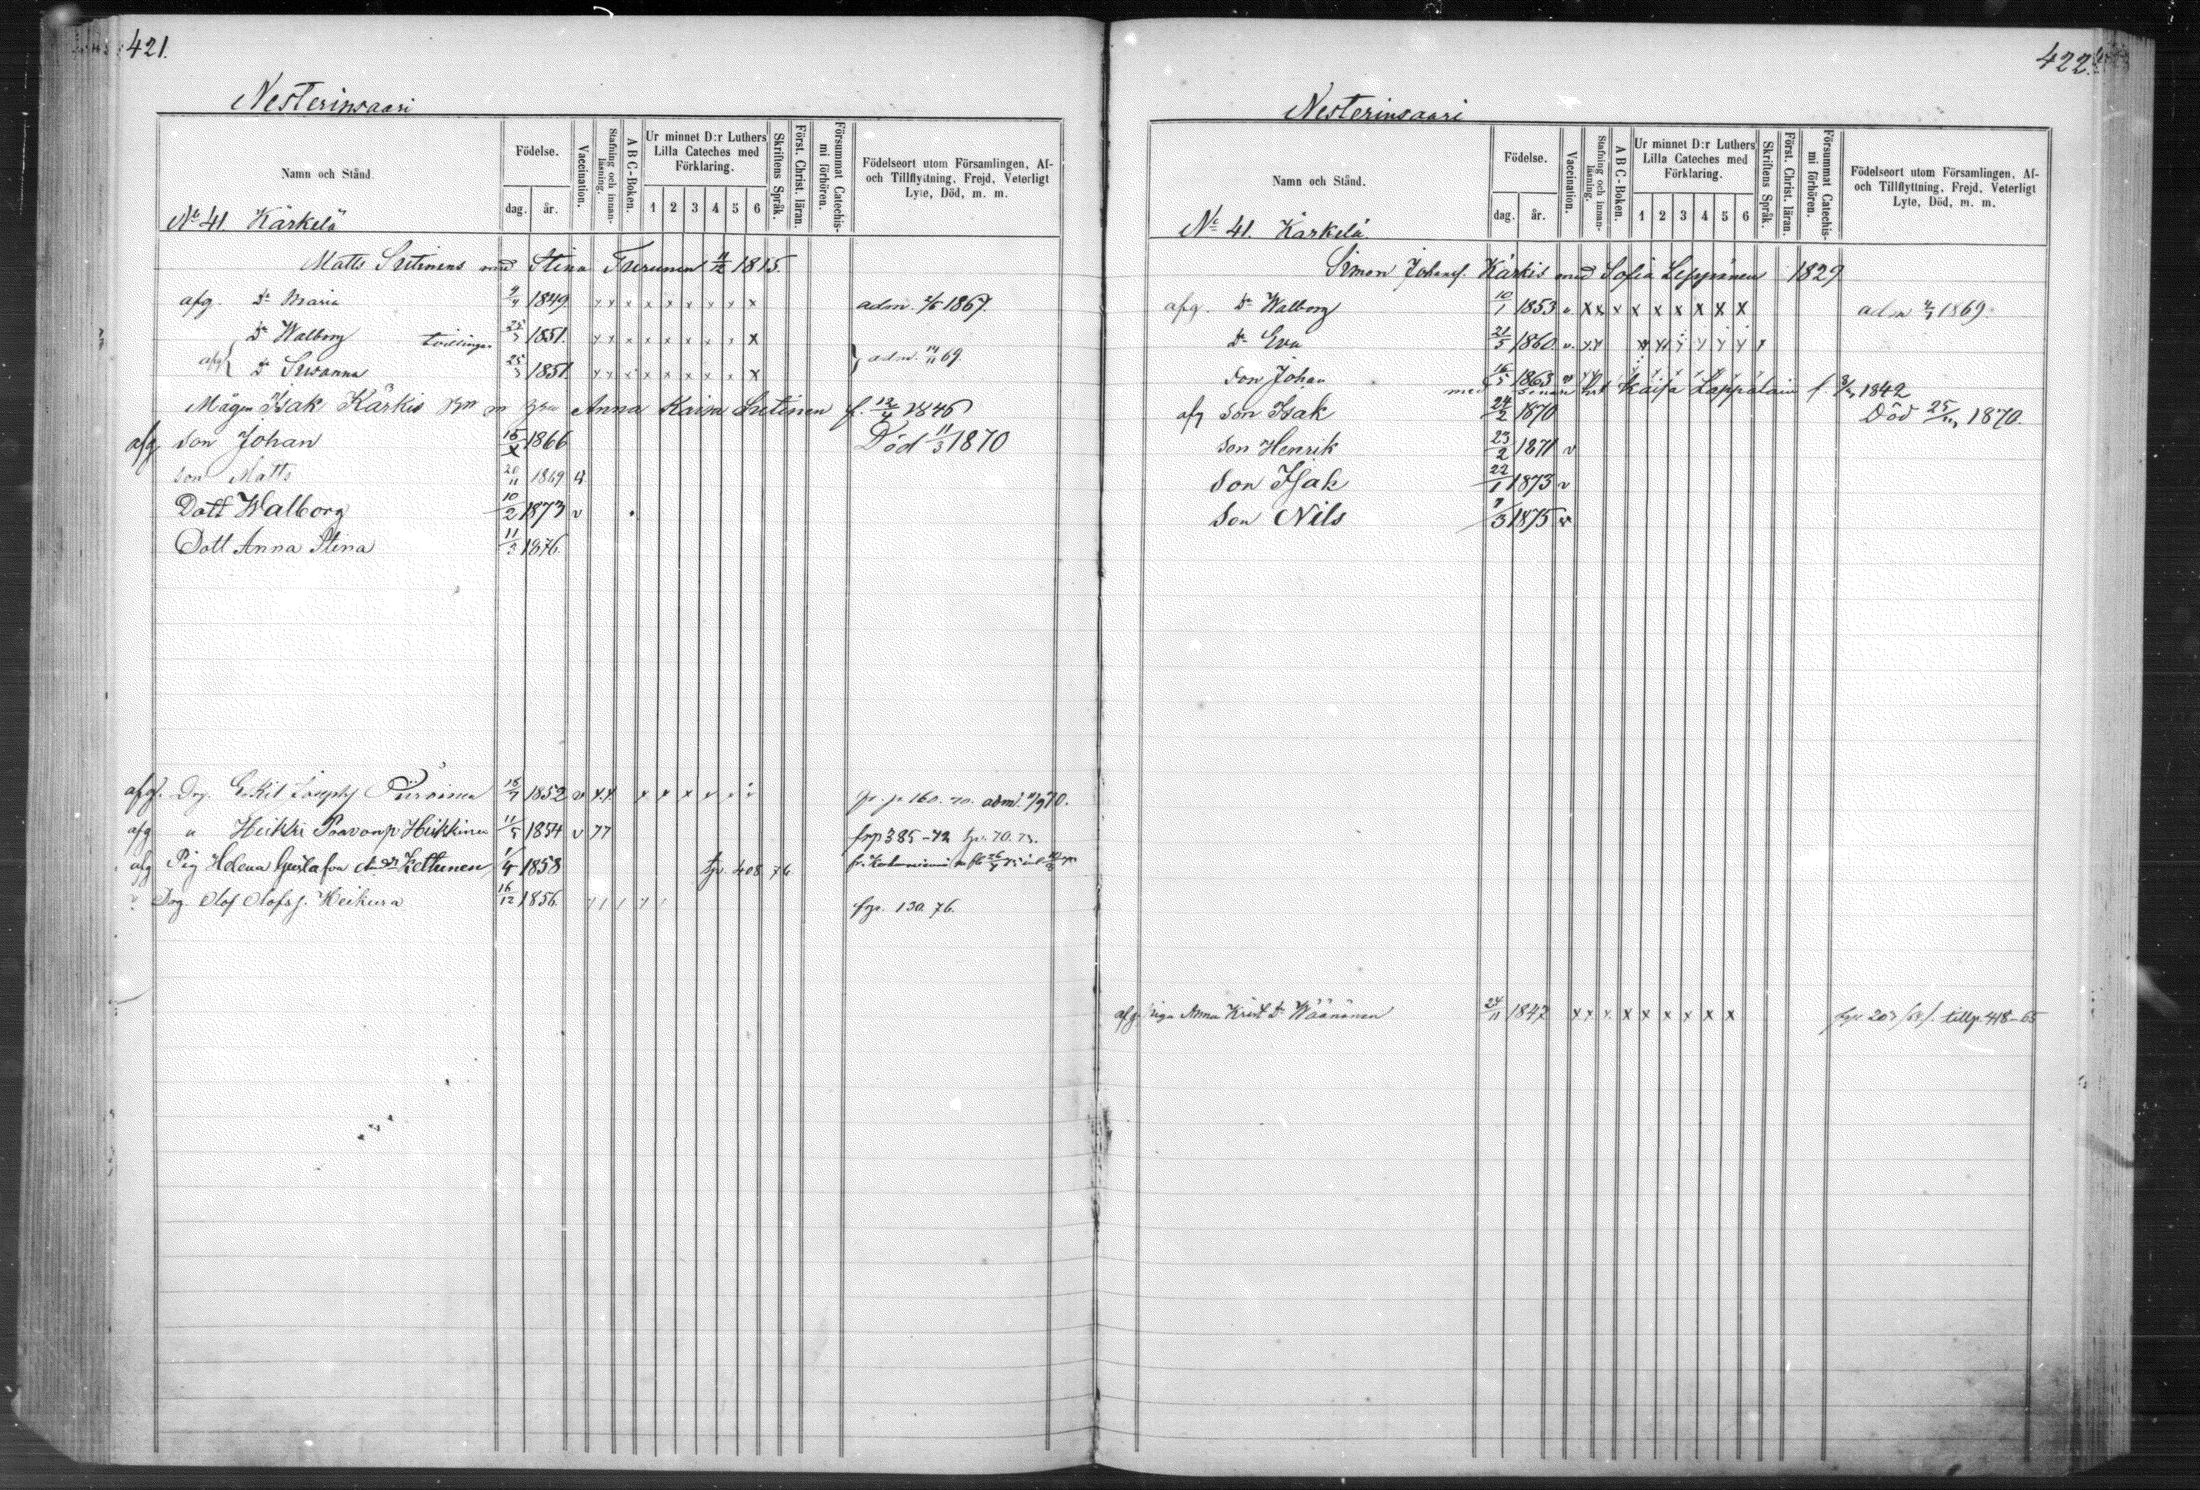 421.
Nesterinsaari
Namn och Stånd.
Födelse.
dag. år.
Vaccination.
Stafning och innan-läsning.
A B C-Boken.
Ur minnet D:r Luthers Lilla Cateches med Förklaring.
1 2 3 4 5 6
Skriftens Språk.
Först. Christ. läran.
Försummat Catechis-mi förhören.
Födelseort utom Församlingen, Af-
och Tillflyttning, Frejd, Veterligt
Lyte, Död, m. m.
No 41. Kärkelä
Matts med Stina Turunen 1815.
afg. Dr Maria 1849 x x x x x x x x adm. 1867.
Dr Walborg tvillingar 25/3 1851. x x x x x x x x
afg Dr Susanna 25/3 1851 x x x x x x x x adm. 14/11 69
Mågen Isak Kärkis Anna Kaisa f. 12/4 1846
afg Son Johan 15/X 1866 Död 11/3 1870
Son Matts 20/11 1869 v
Dott Walborg 10/2 1873 v
Dott Anna Stina 11/3 1876.
afg. Drg. Josephs 1852 v x x x x x x fr. p 160. 70. adm. 70.
afg " Heikki Paavonp Heikkinen 11/5 1854 v frp 385-72 70. 75.
afg Pig Helena Gustafva Kettunen 1/4 1858 tp. 408 76
Drg Olof Olofs. Heikura 16/12 1856. frp. 130. 76.
422.
Nesterinsaari
Namn och Stånd.
Födelse.
dag. år.
Vaccination.
Stafning och innan-läsning.
A B C-Boken.
Ur minnet D:r Luthers Lilla Cateches med Förklaring.
1 2 3 4 5 6
Skriftens Språk.
Först. Christ. läran.
Försummat Catechis-mi förhören.
Födelseort utom Församlingen, Af-
och Tillflyttning, Frejd, Veterligt
Lyte, Död, m. m.
No 41. Kärkelä
Simon Johans. Kärkis med Sofia Leppänen 1829
afg. Dr Walborg 10/1 1853 v x x x x x x x x adm 1869
Dr Eva 21/5 1860. v. x x
Son Johan 16/5 1863 v
med Kaisa Leppälain f. 1842
afg Son Isak 24/2 1870 Död 25/ 1870.
Son Henrik 23/2 1871 v
Son Isak 22/1 1873 v
Son Nils 7/3 1875 v
afg. Piga Anna Krist. Dr Väänänen 24/11 1847 x x x x x x x x x tillp. 418-65